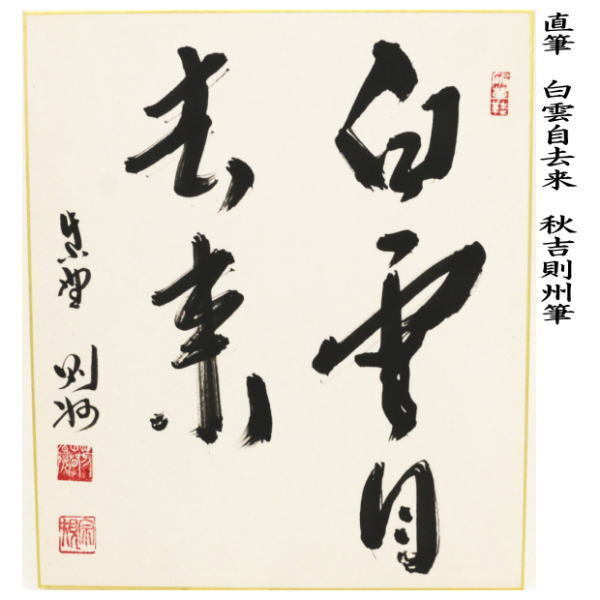 直筆　白雲自去来　秋吉則州筆
白雲自
去来
紫野 則州